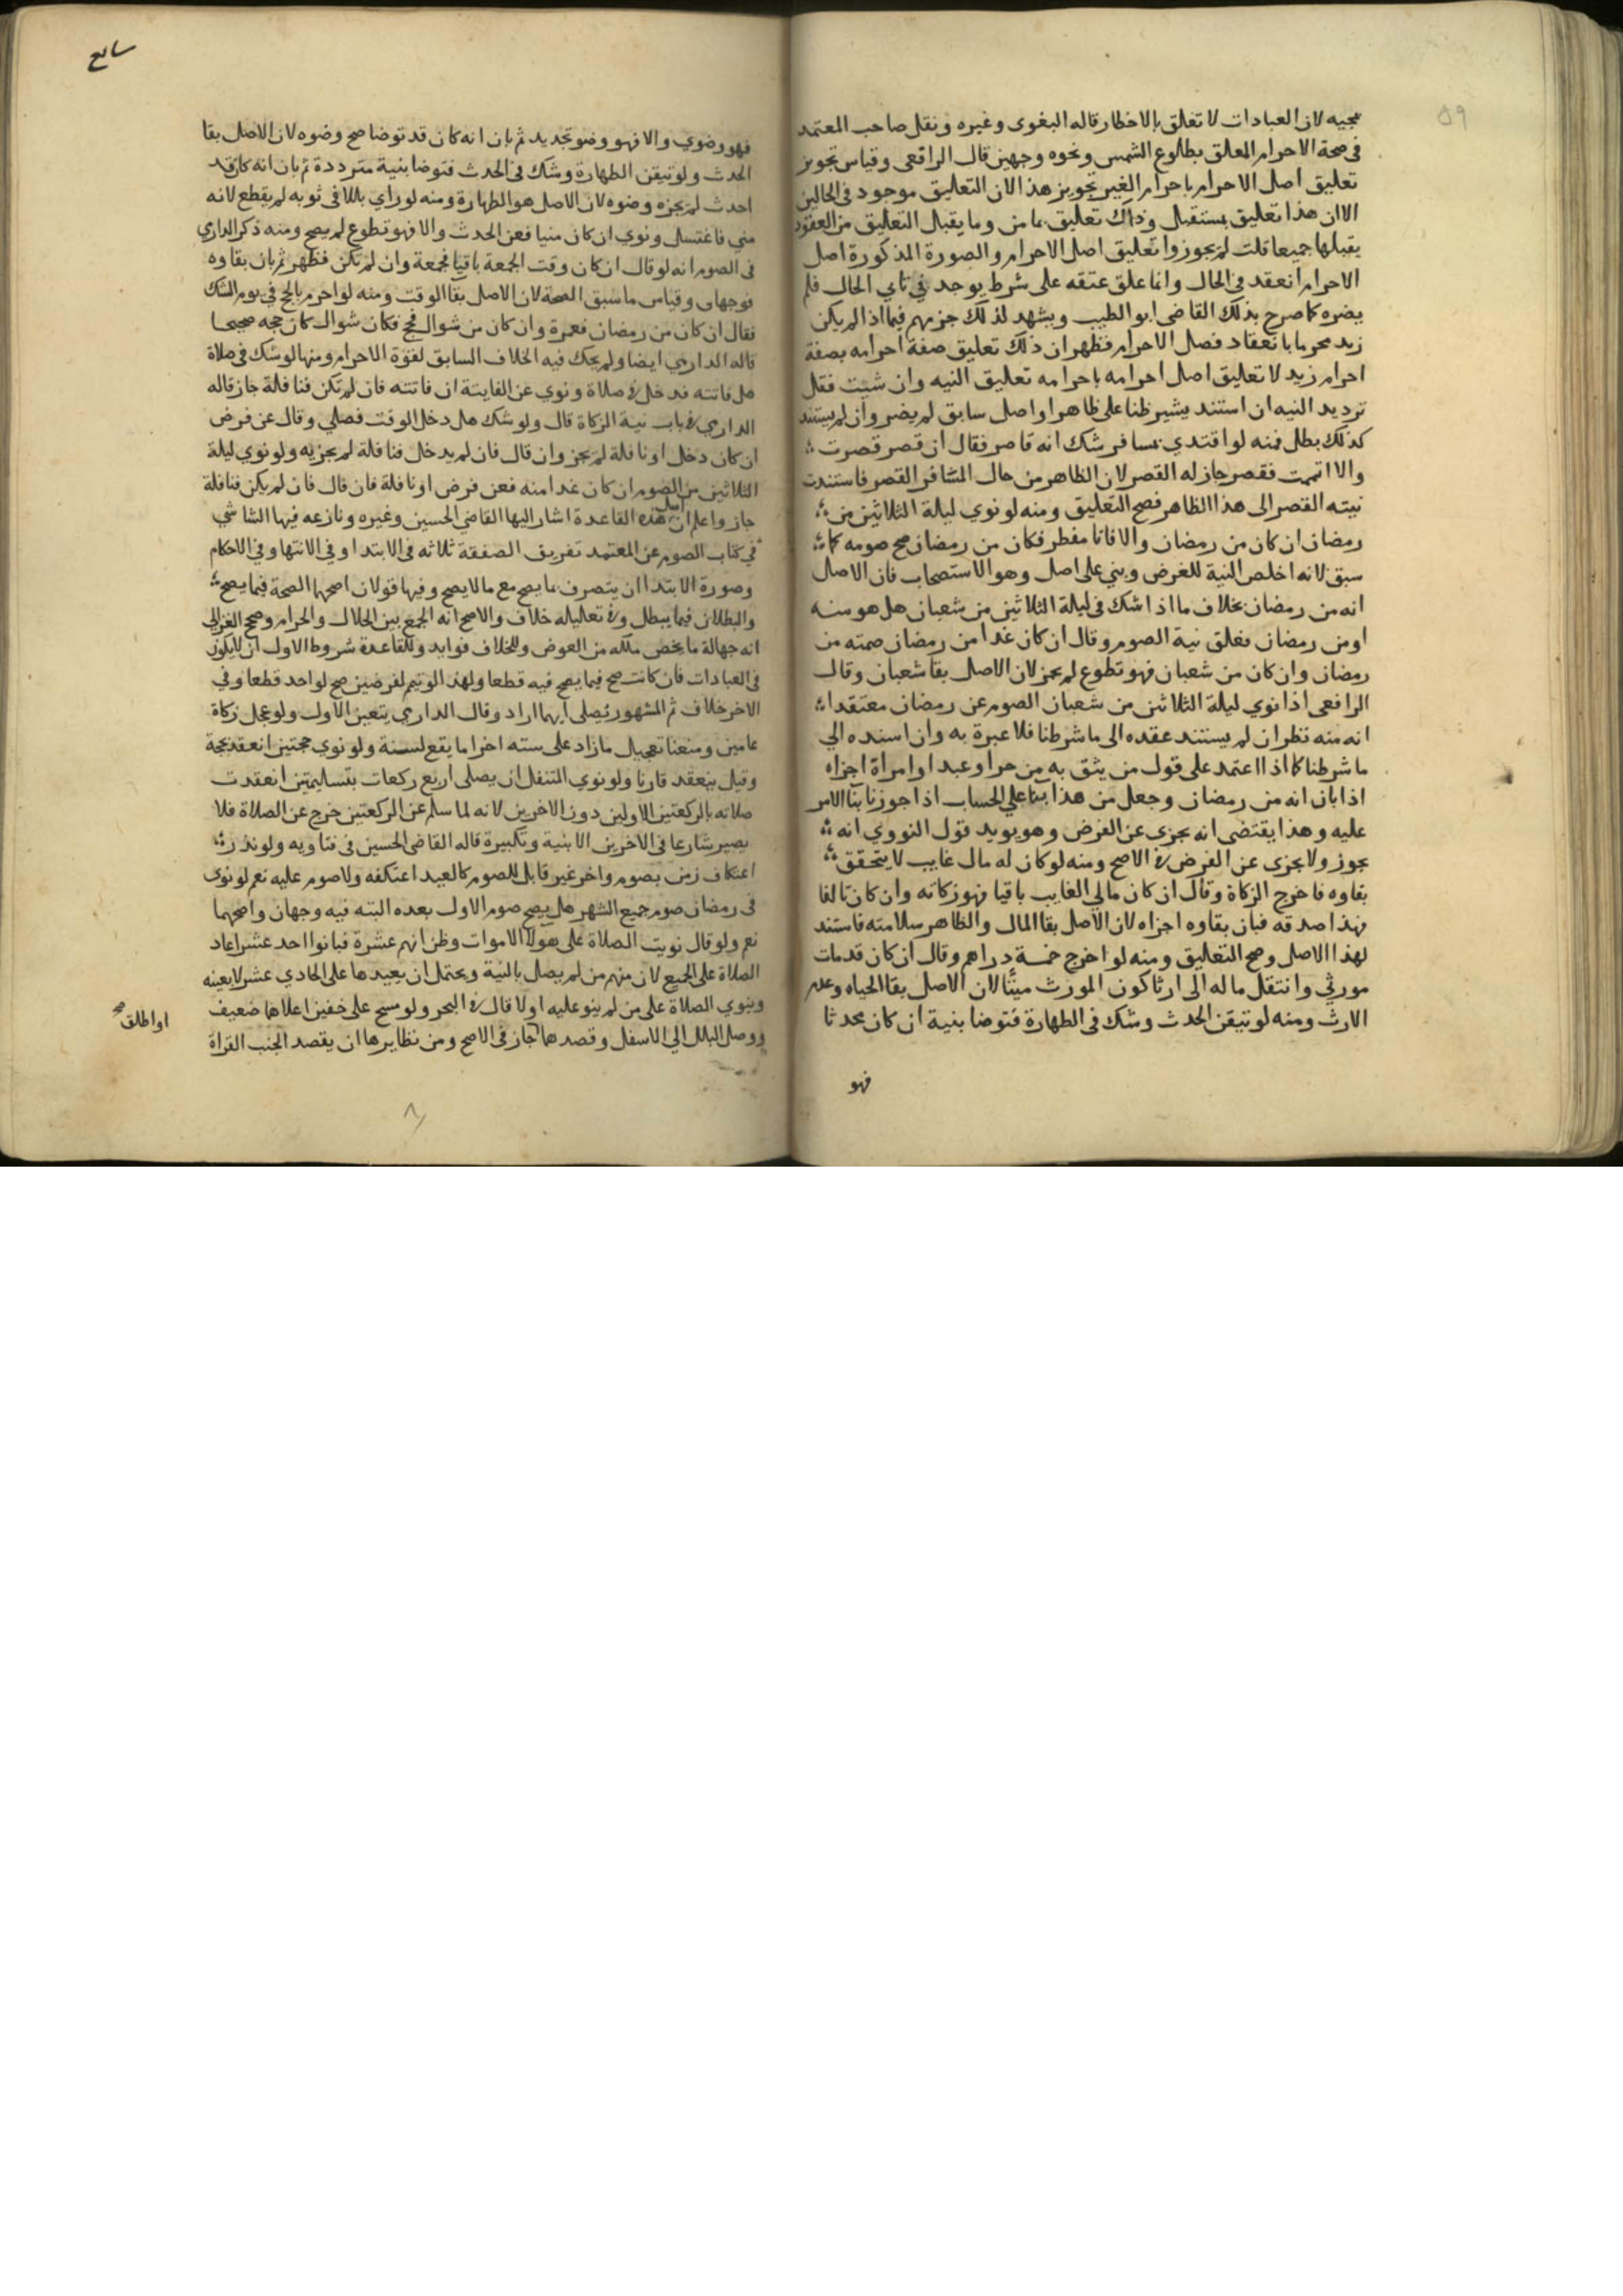 ٥٩
بمجيه لان العبادات لا تعلق بالاخطار قاله البغوى وغيره ونقل صاحب المعتمد
فى صحة الاحرام المعلق بطلوع الشمس ونحوه وجهين قال الرافعى وقياس تجويز
تعليق اصل الاحرام باحرام الغير تجويز هذا لان التعليق موجود فى الحالين
الا ان هذا تعليق بمستقبل وذاك تعليق بماض وما يقبل التعليق من العقود
يقبلهما جميعا قلت لم يجوزوا تعليق اصل الاحرام والصورة المذكورة اصل
الاحرام انعقد فى الحال وانما علق عتقه على شرط يوجد في ثاني الحال فلم
يضره كما صرح بذلك القاضى ابو الطيب ويشهد لذلك جزمهم فيما اذا لم يكن
زيد محرما بانعقاد فصل الاحرام فظهر ان ذلك تعليق صفة احرامه بصفة
احرام زيد لا تعليق اصل احرامه باحرامه تعليق النيه وان شيت فقل
ترديد النيه ان استند يشير ظنا على ظاهر او اصل سابق لم يضر وان لم يستند
كذلك بطل فمنه لو اقتدي بمسافر شك انه قاصر فقال ان قصر قصرت
والا اتممت فقصر جاز له القصر لان الظاهر من حال المسافر القصر فاستندت
نيته القصر الى هذا الظاهر فصح التعليق ومنه لو نوي ليلة الثلاثين من
رمضان ان كان من رمضان والا فانا مفطر فكان من رمضان صح صومه كما
سبق لانه اخلص النية للفرض وبني على اصل وهو الاستصحاب فان الاصل
انه من رمضان بخلاف ما اذا شك فى ليلة الثلاثين من شعبان هل هو منه
او من رمضان فعلق نية الصوم وقال ان كان غدا من رمضان صمته من
رمضان وان كان من شعبان فهو تطوع لم يجز لان الاصل بقا شعبان وقال
الرافعى اذا نوي ليلة الثلاثين من شعبان الصوم عن رمضان معتقدا
انه منه نظر ان لم يستند عقده الى ما شرطنا فلا عبرة به وان اسنده الي
ما شرطنا كما اذا اعتمد على قول من يثق به من حر او عبد او امراة اجزاه
اذا بان انه من رمضان وجعل من هذا بنا علي الحساب اذا جوزنا بنا الامر
عليه وهذا يقتضى انه يجزى عن الفرض وهو يويد قول النووي انه
يجوز ولا يجزى عن الفرض في الاصح ومنه لو كان له مال غايب لا يتحقق
بقاوه فاخرج الزكاة وقال ان كان مالي الغايب باقيا فهو زكاته وان كان تالفا
فهذا صدقه فبان بقاوه اجزاه لان الاصل بقا المال والظاهر سلامته فاستند
لهذا الاصل وصح التعليق ومنه لو اخرج خمسة دراهم وقال ان كان قد مات
مورثي وانتقل ماله الى ارثا كون المورث ميتا لان الاصل بقا الحياه وعدم
الارث ومنه لو تيقن الحدث وشك فى الطهارة فتوضا بنية ان كان محدثا
فهو
فهو وضوي والا فهو وضو تجديد ثم بان انه كان قد توضا صح وضوه لان الاصل بقا
الحدث ولو تيقن الطهارة وشك فى الحدث فتوضا بنية مترددة ثم بان انه كان قد
احدث لم يجزه وضوه لان الاصل هو الطهارة ومنه لو راي بللا فى ثوبه لم يقطع لانه
مني فاغتسل ونوي ان كان منيا فعن الحدث والا فهو تطوع لم يصح ومنه ذكر الدارمي
فى الصوم انه لو قال ان كان وقت الجمعة باقيا فجمعة وان لم تكن فظهر ثم بان بقاوه
فوجهان وقياس ما سبق الصحة لان الاصل بقا الوقت ومنه لو احرم بالحج في يوم الشك
فقال ان كان من رمضان فعمرة وان كان من شوال فحج فكان شوال كان حجه صحيحا
قاله الدارمي ايضا ولم يحك فيه الخلاف السابق لقوة الاحرام ومنها لو شك فى صلاة
هل فاتته فدخل في صلاة ونوي عن الفايتة ان فاتته فان لم تكن فنافلة جاز قاله
الدارمي في باب نية الزكاة قال ولو شك هل دخل الوقت فصلي وقال عن فرض
ان كان دخل او نافلة لم يجز وان قال فان لم يدخل فنافلة لم يجزيه ولو نوي ليلة
الثلاثين من الصوم ان كان غدا منه فعن فرض او نافلة فان قال فان لم يكن فنافلة
جاز واعلم ان اصل هذه القاعدة اشار اليها القاضي الحسين وغيره ونازعه فيها الشاشي
في كتاب الصوم عن المعتمد تفريق الصفقة ثلاثه فى الابتدا وفي الانتها وفي الاحكام
وصورة الابتدا ان يتصرف بما يصح مع ما لا يصح وفيها قولان اصحهما الصحة فيما يصح
والبطلان فيما يبطل وفي تعاليله خلاف والاصح انه الجمع بين الحلال والحرام وصحح الغزالي
انه جهالة ما يخص ملكه من العوض وللخلاف فوايد وللقاعدة شروط الاول ان لا يكون
فى العبادات فان كانت صح فيما يصح فيه قطعا ولهذا لو تيمم لفرضين صح لواحد قطعا وفي
الاخر خلاف ثم المشهور يصلى ايهما اراد وقال الدارمي يتعين الاول ولو عجل زكاة
عامين ومنعنا تعجيل ما زاد على سنه اجزا ما يقع لسنة ولو نوي حجتين انعقد بحجة
وقيل ينعقد قارنا ولو نوي المتنفل ان يصلى اربع ركعات بتسليمتين انعقدت
صلاته بالركعتين الاولين دون الاخرين لانه لما سلم عن الركعتين خرج عن الصلاة فلا
يصير شارعا فى الاخرين الا بنية وتكبيرة قاله القاضى الحسين فى فتاويه ولو نذر
اعتكاف زمن بصوم واخر غير قابل للصوم كالعيد اعتكفه ولا صوم عليه نعم لو نوى
فى رمضان صوم جميع الشهر هل يصح صوم الاول بعده البته فيه وجهان واصحهما
نعم ولو قال نويت الصلاة على هولا الاموات وظن انهم عشرة فبانوا احد عشر اعاد
الصلاة على الجميع لان منهم من لم يصل بالنية ويحتمل ان يعيدها على الحادي عشر لا بعينه
وينوي الصلاة على من لم ينو عليه اولا قال في البحر ولو مسح على خفين اعلاهما ضعيف
ووصل البلل الي الاسفل وقصدهما جاز فى الاصح ومن نظايرها ان يقصد الجنب القراة
او اطلق صح